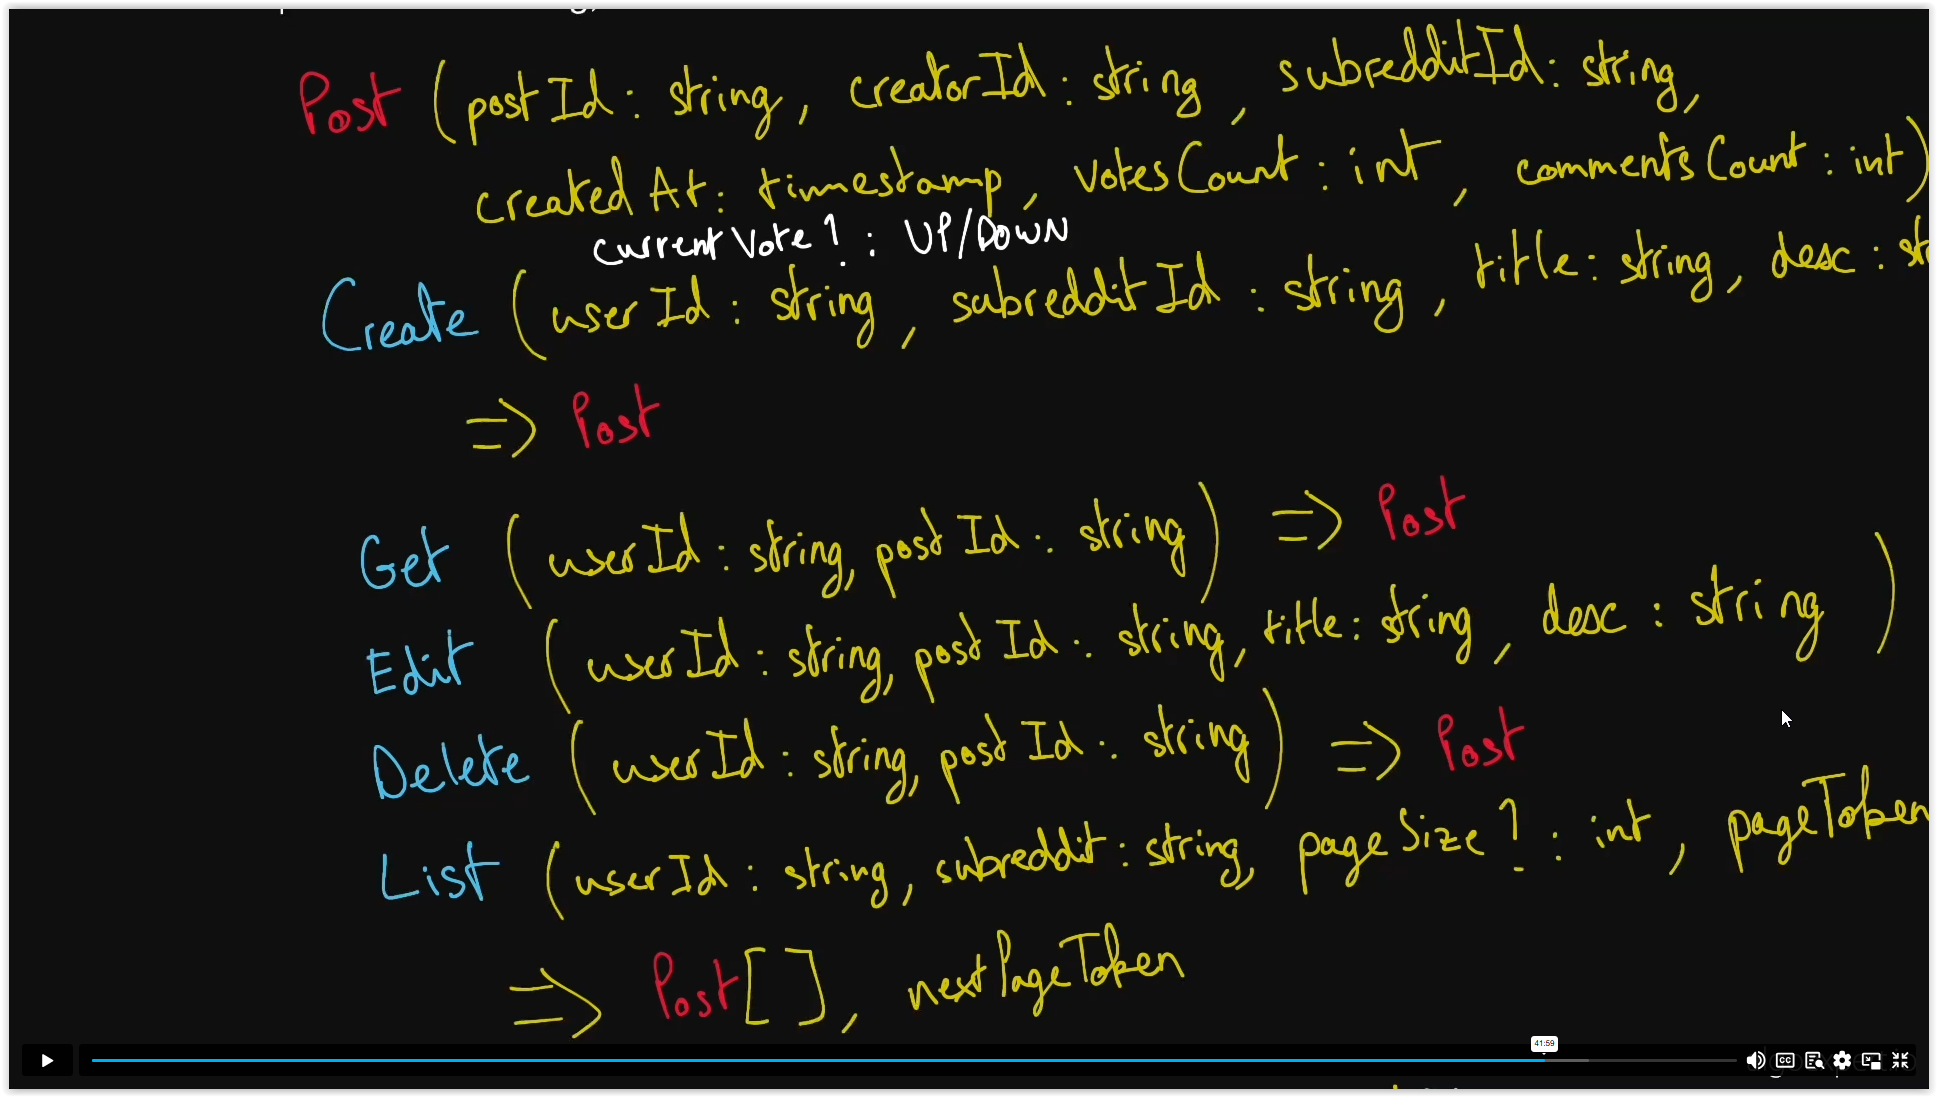 Post (postId : string, creatorId : string, subredditId : string,
createdAt : timestamp, votesCount : int, commentsCount : int)
currentVote? : UP/DOWN
Create (userId : string, subredditId : string, title : string, desc : str
=> Post
Get (userId : string, postId : string) => Post
Edit (userId : string, postId : string, title : string, desc : string)
Delete (userId : string, postId : string) => Post
List (userId : string, subreddit : string, pageSize? : int, pageToken
=> Post[], nextPageToken
41:59
CC